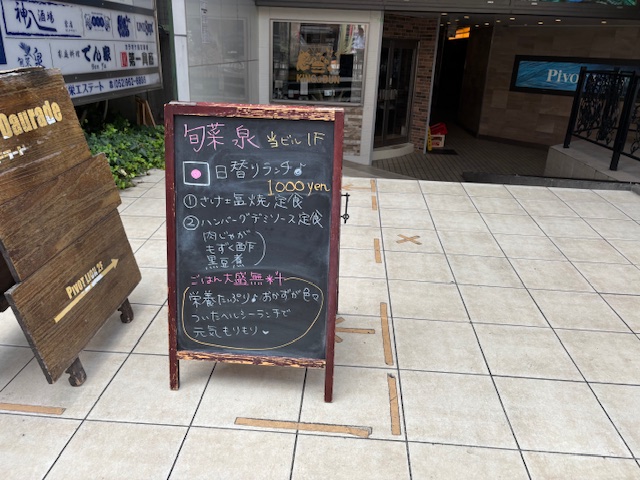 神八酒場
てん家
第一興商
旬菜 泉
栄エステート
Daurade
Pivot
PIVOT
旬菜 泉 当ビル1F
日替りランチ♪
1000yen
①さけ塩焼定食
②ハンバーグデミソース定食
肉じゃが
もずく酢
黒豆煮
ごはん大盛無料
栄養たっぷり♪おかずが色々
ついたヘルシーランチで
元気もりもり♥